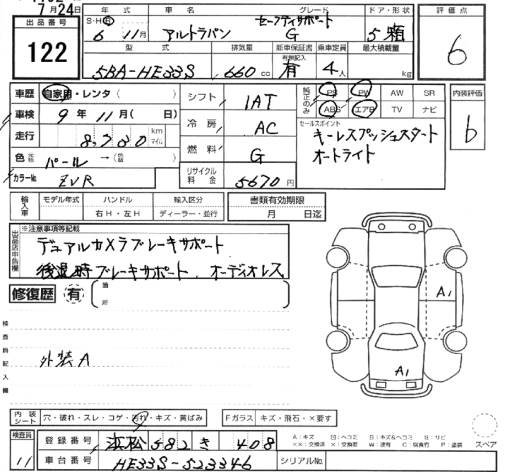 7月24日
出品番号
122
年式 車名 グレード ドア・形状 評価点
S・H・R
6 11月 アルトラパン セーフティサポート G 5 6
型式 排気量 新車保証書 乗車定員 最大積載量
有無記入
5BA-HE33S 660cc 有 4人 kg
車歴 自家用・レンタ( )
車検 9年11月( 日)
走行 8,700 km マイル
色 パール→( )
カラーNo ZVR
シフト IAT
冷房 AC
燃料 G
リサイクル料金 5670円
純正のみ
PS PW AW SR
ABS エアB TV ナビ
内装評価
b
セールスポイント
キーレスプッシュスタート
オートライト
輸入車 モデル年式 ハンドル 輸入区分
右H・左H ディーラー・並行
書類有効期限
月 日迄
※注意事項等記載
出品店申告欄
デュアルカメラブレーキサポート
後退時ブレーキサポート、オーディオレス
修復歴 有
箇所
検査員記入欄
外装A
A1
A1
内装シート 穴・破れ・スレ・コゲ・汚れ・キズ・黄ばみ
Fガラス キズ・飛石・×要す
検査員
11
登録番号 浜松 582 き 408
車台番号 HE33S-523346
シリアルNo.
A:キズ U:ヘコミ B:キズ&ヘコミ S:サビ
××:交換済 ×:交換要 W:波有 C:腐食 P:塗装
スペア